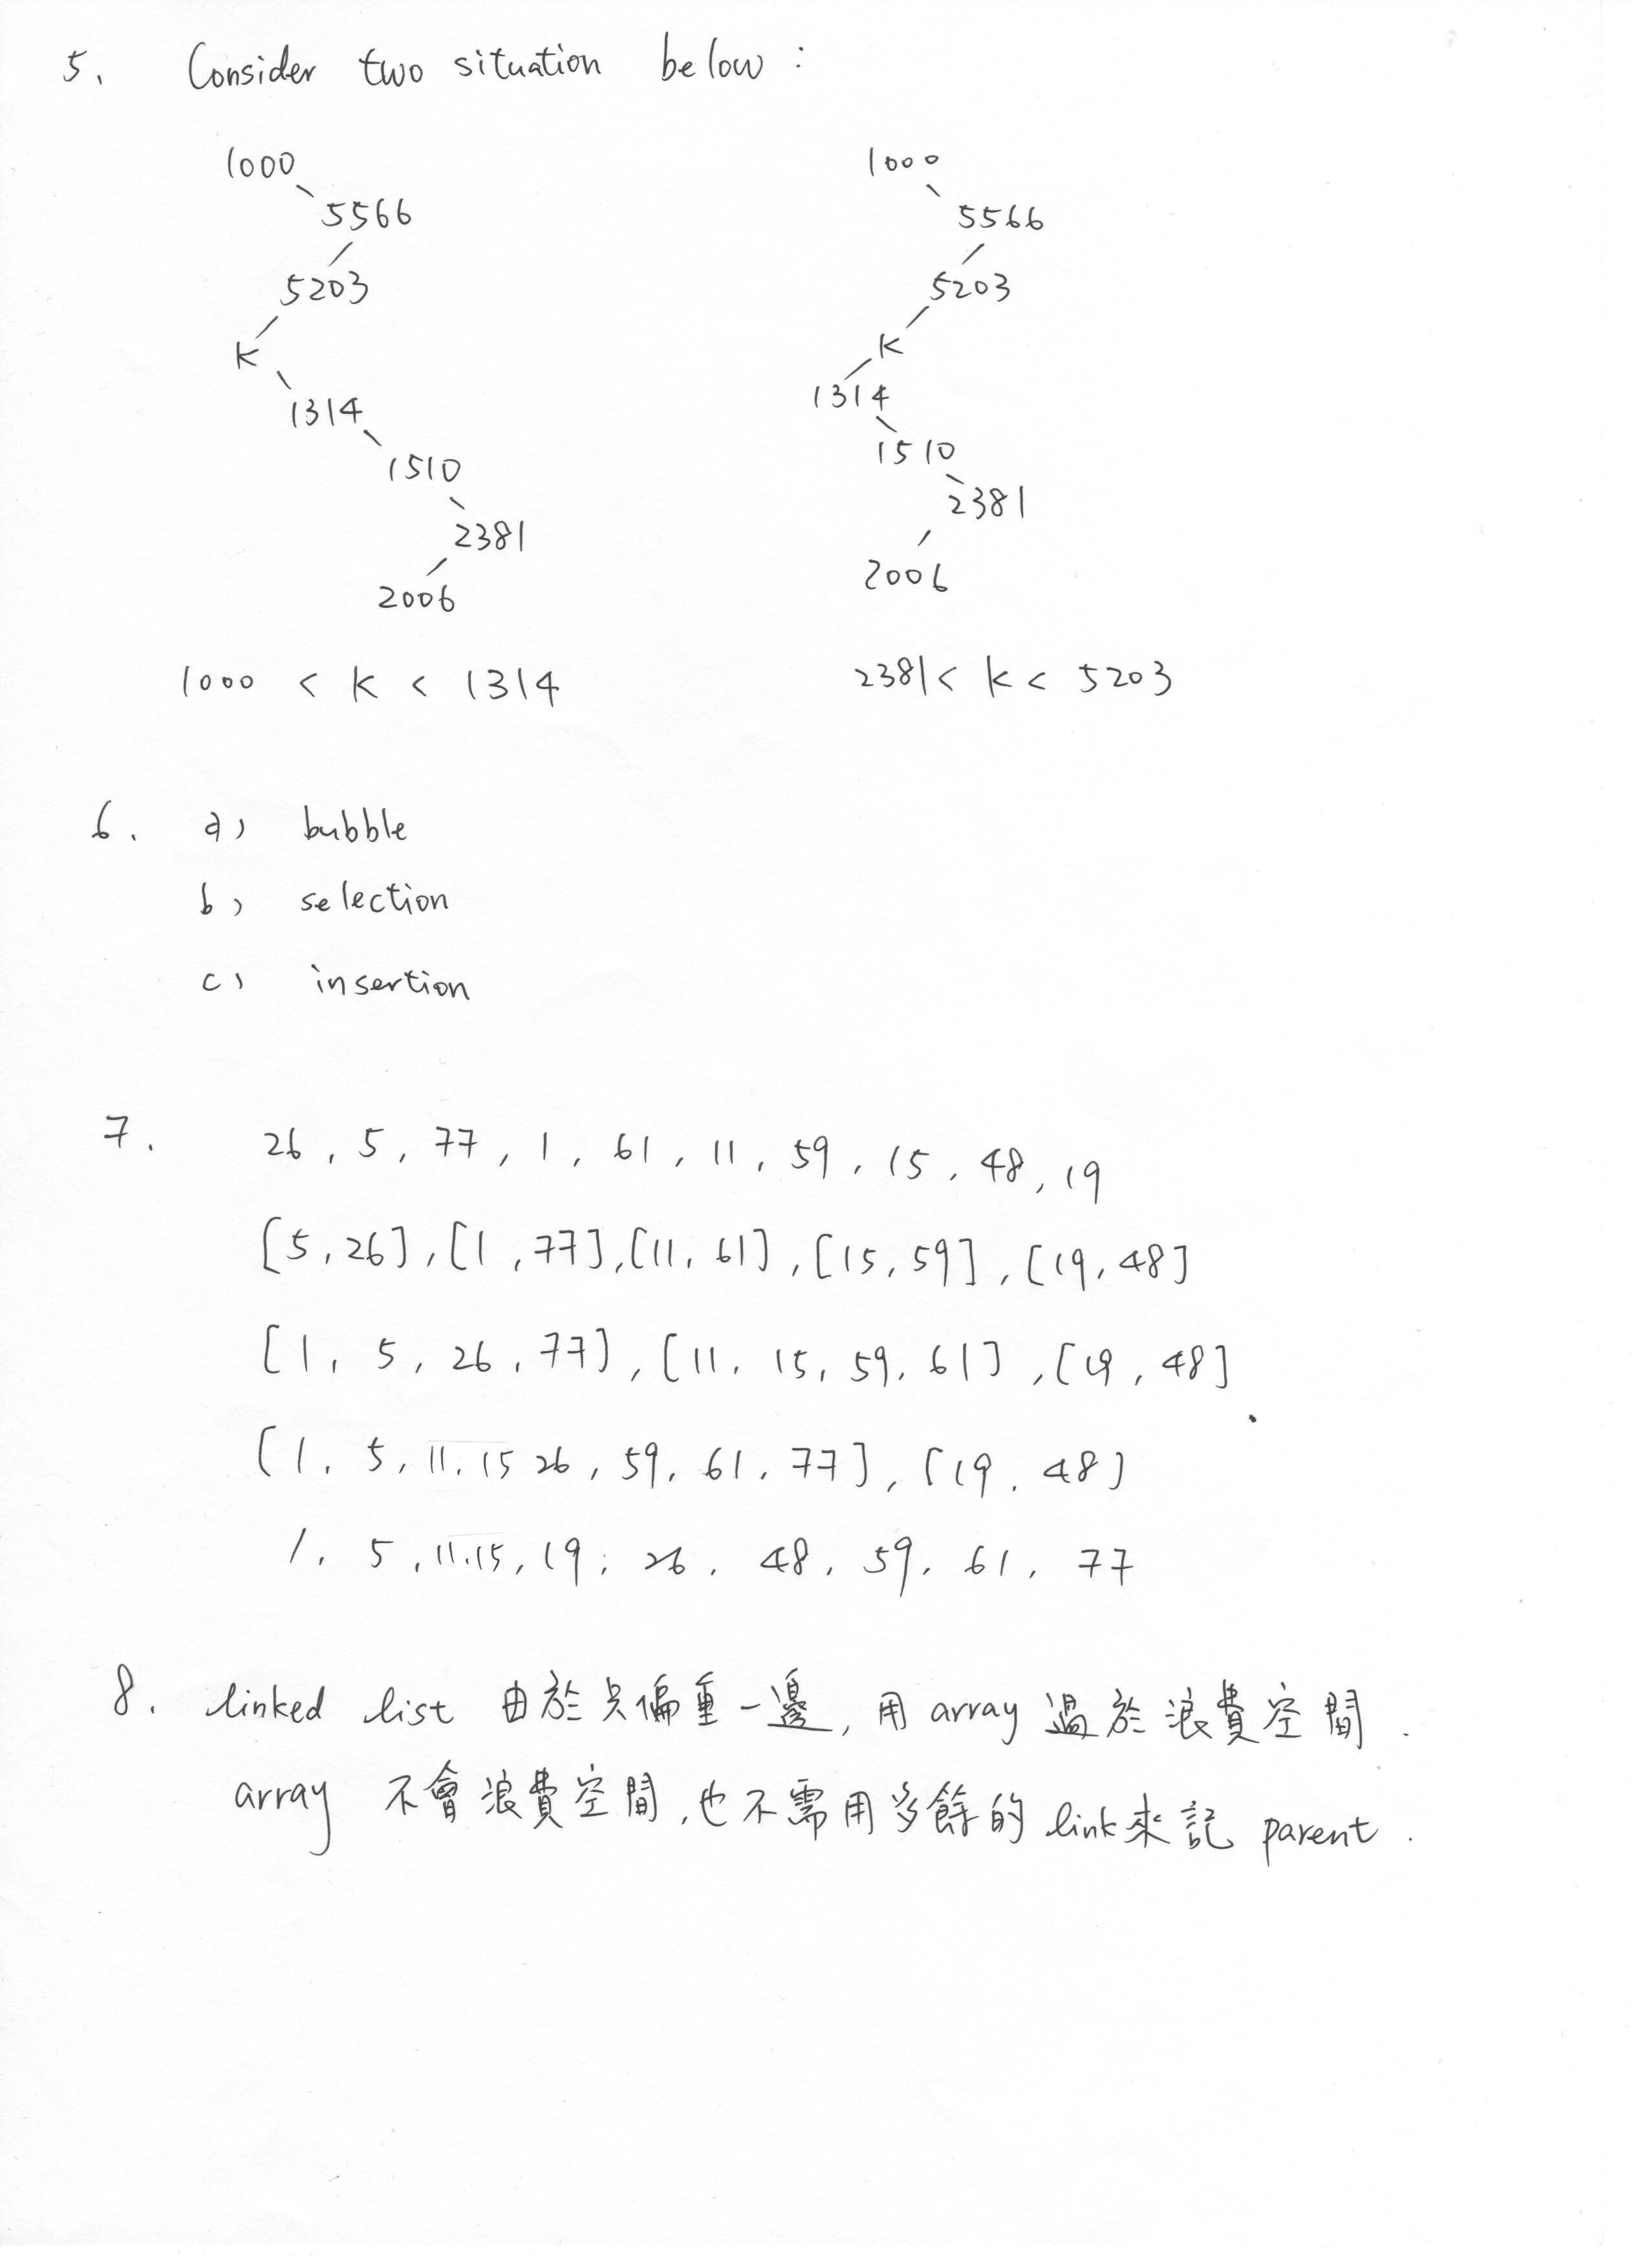 5. Consider two situation below :
1000 1000
5566 5566
5203 5203
K K
1314 1314
1510 1510
2381 2381
2006 2006
1000 < K < 1314 2381 < K < 5203
6. a) bubble
b) selection
c) insertion
7. 26, 5, 77, 1, 61, 11, 59, 15, 48, 19
[5, 26], [1, 77], [11, 61], [15, 59], [19, 48]
[1, 5, 26, 77], [11, 15, 59, 61], [19, 48]
[1, 5, 11, 15 26, 59, 61, 77], [19, 48]
1, 5, 11, 15, 19, 26, 48, 59, 61, 77
8. linked list 由於只偏重一邊, 用 array 過於浪費空間.
array 不會浪費空間, 也不需用多餘的 link來記 parent.